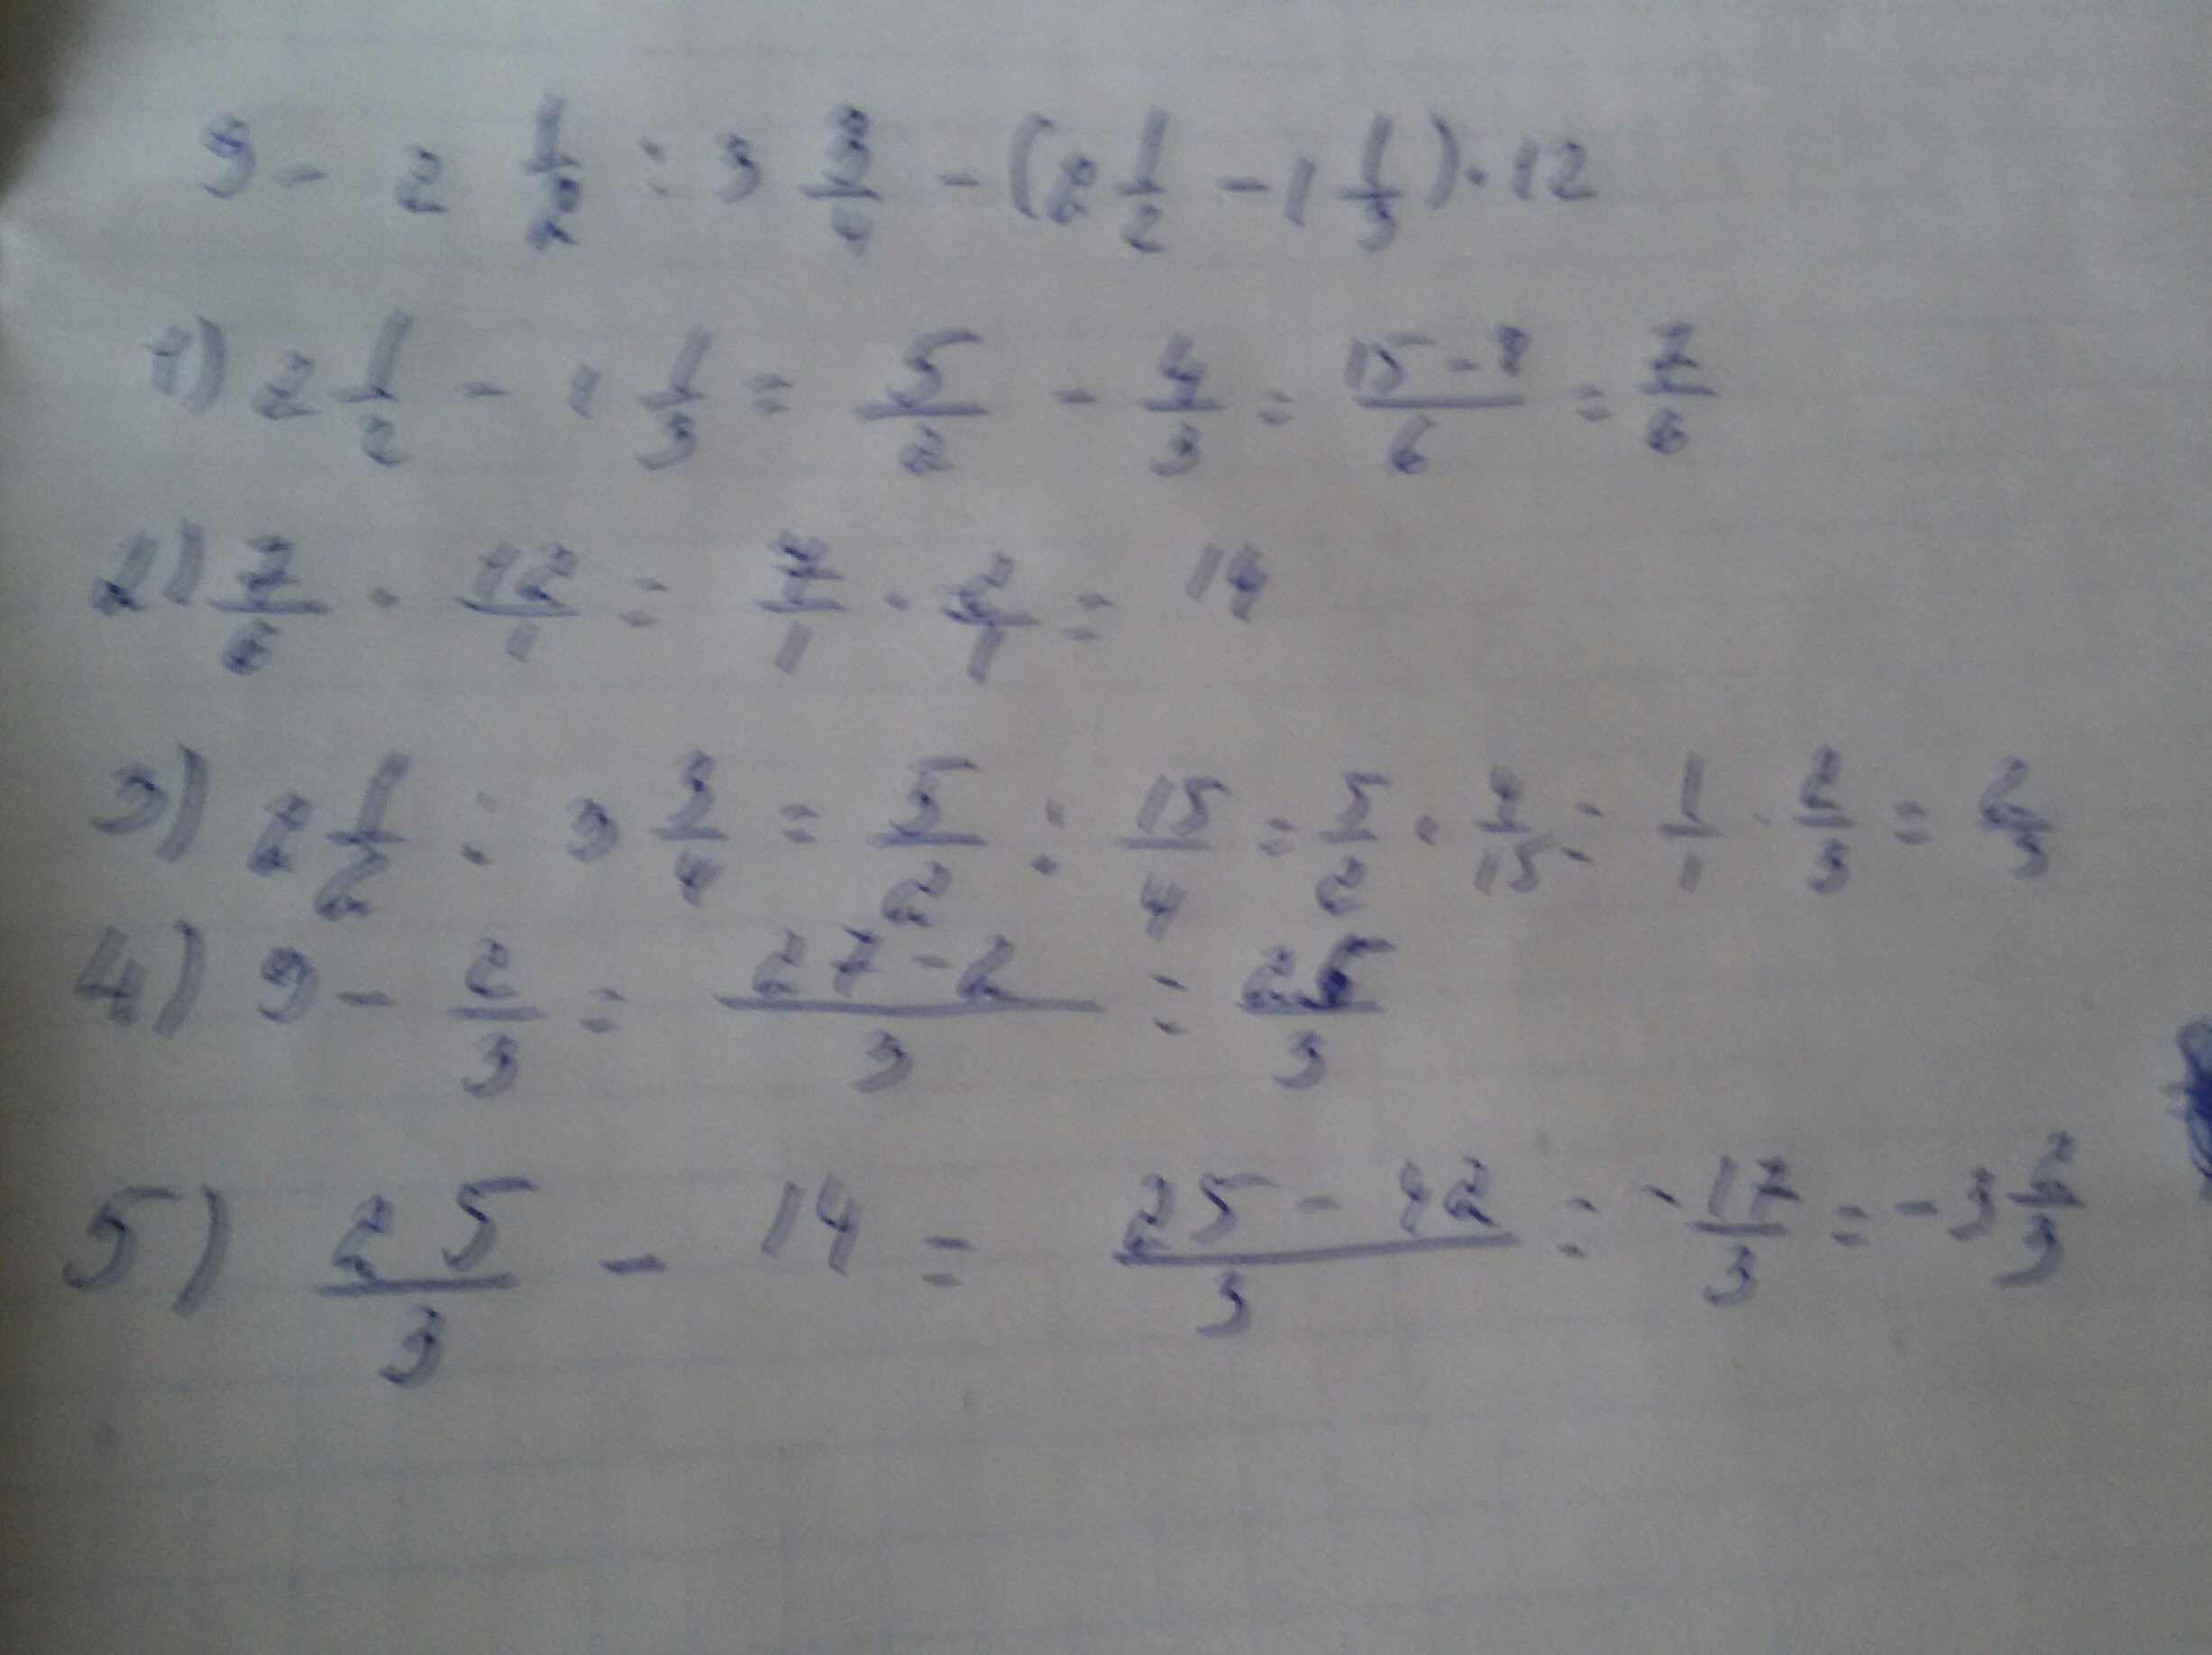 9 - 2 1/2 : 3 3/4 - (2 1/2 - 1 1/3) · 12
1) 2 1/2 - 1 1/3 = 5/2 - 4/3 = 15-8/6 = 7/6
2) 7/6 · 12/1 = 7/1 · 2/1 = 14
3) 2 1/2 : 3 3/4 = 5/2 : 15/4 = 5/2 · 4/15 = 1/1 · 2/3 = 2/3
4) 9 - 2/3 = 27-2/3 = 25/3
5) 25/3 - 14 = 25-42/3 = -17/3 = -3 2/3